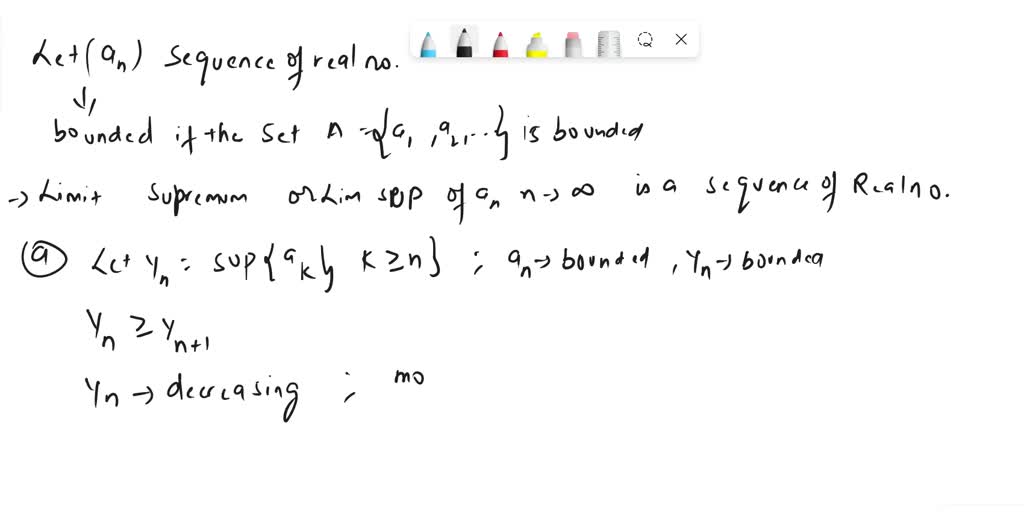 Let (aₙ) sequence of real no.
↓
bounded if the set A = {a₁, a₂, ...} is bounded
→ Limit supremum or Lim sup of aₙ n → ∞ is a sequence of Real no.
ⓐ Let yₙ = sup{aₖ, k ≥ n} ; aₙ → bounded, Yₙ → bounded
Yₙ ≥ Yₙ₊₁
Yₙ → decreasing ; mo